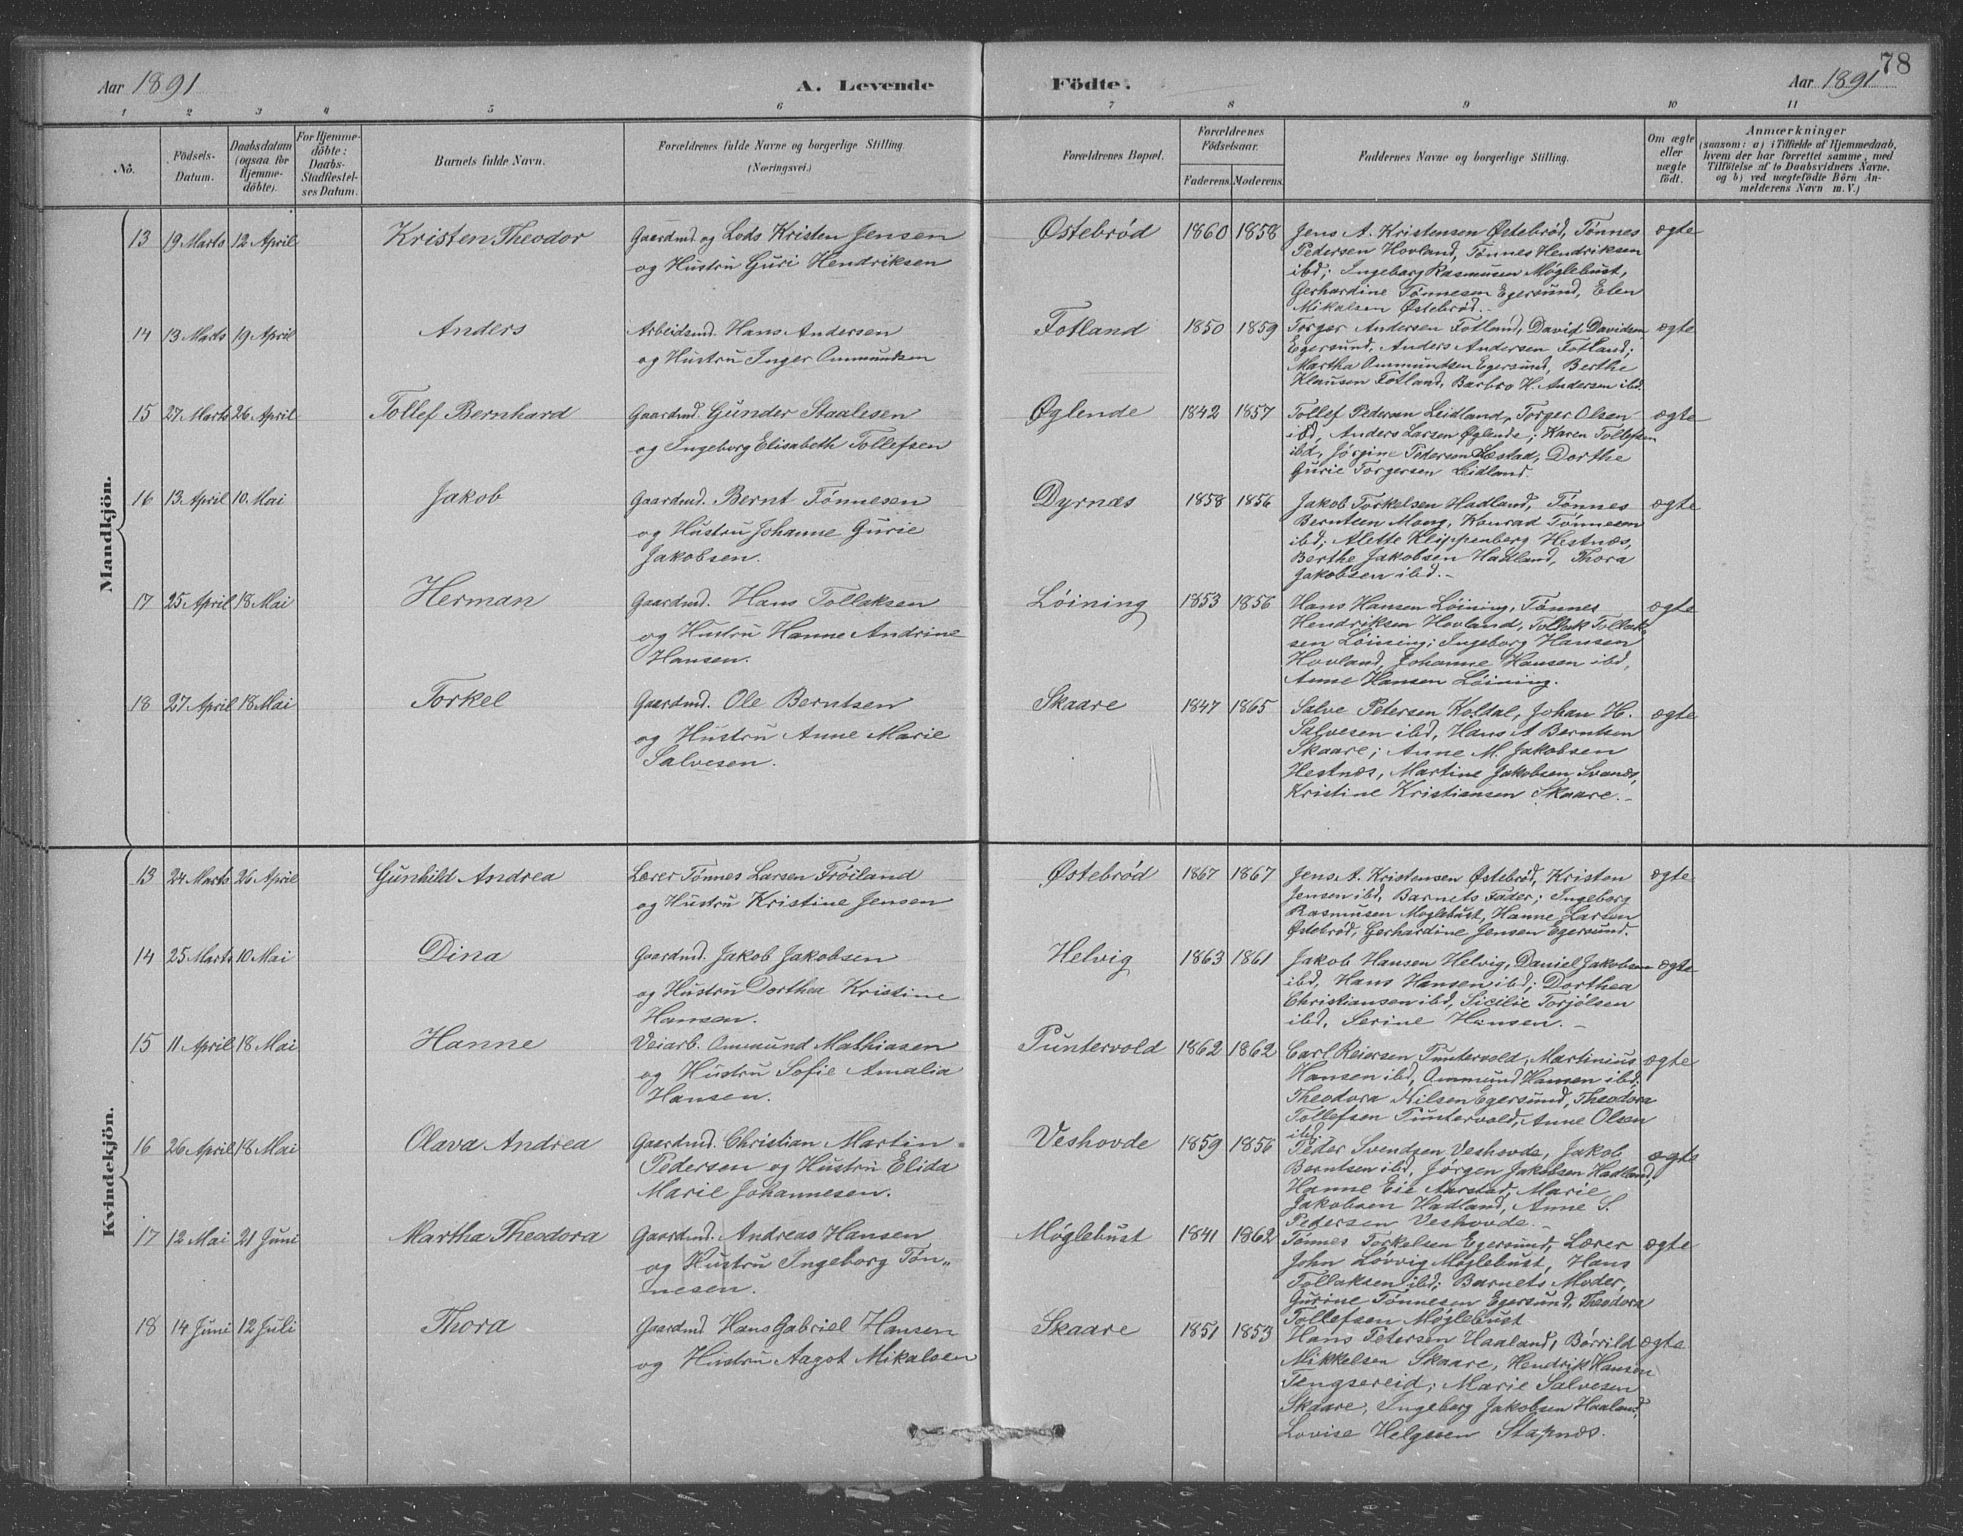 78
Aar 1891 A. Levende Födte. Aar 1891
1 2 3 4 5 6 7 8 9 10 11
No.
Födsels-
Datum.
Daabsdatum
(ogsaa for
Hjemme-
döbte).
For Hjemme-
döbte:
Daabs-
Stadfæstel-
ses Datum.
Barnets fulde Navn.
Forældrenes fulde Navne og borgerlige Stilling.
(Næringsvei.)
Forældrenes Bopæl.
Forældrenes
Födselsaar.
Faderens. Moderens.
Faddernes Navne og borgerlige Stilling.
Om ægte
eller
uægte
födt.
Anmærkninger
(saasom: a) i Tilfælde af Hjemmedaab,
hvem der har forrettet samme, med
Tilföielse af to Daabsvidners Navne,
og b) ved uægtefödte Börn An-
melderens Navn m. V.)
Mandkjön.
13 19 Marts 12 April Kristen Theodor Gaardmd og Lods Kristen Jensen
og Hustru Guri Hendriksen
Østebrød 1860 1858 Jens A. Kristensen Østebrød, Tønnes ægte
Pedersen Hovland, Tønnes Hendriksen
ibd; Ingeborg Rasmusen Møglebust,
Gerhardine Tønnesen Egersund, Elen
Mikalsen Østebrød.
14 13 Marts 19 April Anders Arbeidsmd. Hans Andersen
og Hustru Inger Ommundsen
Fotland 1850 1859 Torger Andersen Fotland, David Davidsen ægte
Egersund, Anders Andersen Fotland;
Martha Ommundsen Egersund, Berthe
Klausen Fotland, Barbro H. Andersen ibd.
15 27 Marts 26 April Tollef Bernhard Gaardmd. Gunder Staalesen
og Ingeborg Elisabeth Tollefsen
Øglende 1842 1857 Tollef Pedersen Leidland, Torger Olsen ægte
ibd, Anders Larsen Øglende; Karen Tollefsen
ibd, Jørgine Petersen Læstad, Dorthe
Gurie Torgersen Leidland.
16 13. April 10. Mai Jakob Gaardmd. Bernt Tønnesen
og Hustru Johanne Gurie
Jakobsen.
Dyrnæs 1858 1856 Jakob Torkelsen Hadland, Tønnes ægte
Berntsen Mong, Konrad Tønnesen
ibd; Alette Klippenberg Hestnæs,
Berthe Jakobsen Hadland, Thora
Jakobsen ibd.-
17 25 April 18 Mai Herman Gaardmd. Hans Tollaksen
og Hustru Hanne Andrine
Hansen.
Løining 1853 1856 Hans Hansen Løining, Tønnes ægte
Hendriksen Hovland, Tollak Tollak-
sen Løining; Ingeborg Hansen
Hovland, Johanne Hansen ibd,
Anne Hansen Løining.
18 27 April 18 Mai Torkel Gaardmd. Ole Berntsen
og Hustru Anne Marie
Salvesen.
Skaare 1847 1865 Salve Petersen Koldal, Johan H. ægte
Salvesen ibd, Hans A Berntsen
Skaare; Anne M. Jakobsen
Hestnæs, Martine Jakobsen Svanæs,
Kristine Kristiansen Skaare.-
Kvindekjön.
13 24 Marts 26 April Gunhild Andrea Lærer Tønnes Larsen Frøiland
og Hustru Kristine Jensen
Østebrød 1867 1867 Jens A. Kristensen Østebrød, Kristen ægte
Jensen ibd, Barnets Fader; Ingeborg
Rasmusen Møglebust, Hanne Larsen
Østebrød, Gerhardine Jensen Egersund.
14 25 Marts 10 Mai Dina Gaardmd. Jakob Jakobsen
og Hustru Dorthea Kristine
Hansen.
Helvig 1863 1861 Jakob Hansen Helvig, Daniel Jakobsen ægte
ibd, Hans Hansen ibd; Dorthea
Christiansen ibd, Sicilie Torjølsen
ibd, Serine Hansen.-
15 11 April 18 Mai Hanne Veiarb. Ommund Mathiasen
og Hustru Sofie Amalia
Hansen.
Puntervold 1862 1862 Carl Reiersen Puntervold, Martinius ægte
Hansen ibd, Ommund Hansen ibd.
Theodora Nilsen Egersund, Theodora
Tollefsen Puntervold, Anne Olsen
ibd.
16 26 April 18 Mai Olava Andrea Gaardmd. Christian Martin
Pedersen og Hustru Elida
Marie Johannesen.
Veshovde 1859 1856 Peder Svendsen Veshovde, Jakob ægte
Berntsen ibd, Jørgen Jakobsen Hadland,
Hanne Eie Aarstad, Marie
Jakobsen Hadland, Anne S.
Pedersen Veshovde.-
17 12 Mai 21 Juni Martha Theodora Gaardmd. Andreas Hansen
og Hustru Ingeborg Tøn-
nesen.
Møglebust 1841 1862 Tønnes Torkelsen Egersund, Lærer ægte
John Løvvig Møglebust, Hans
Tollaksen ibd; Barnets Moder,
Gurine Tønnesen Egersund, Theodora
Tollefsen Møglebust
18 14 Juni 12 Juli Thora Gaardmd Hans Gabriel Hansen
og Hustru Aagot Mikalsen
Skaare 1851 1853 Hans Petersen Haaland, Børrild ægte
Mikkelsen Skaare, Hendrik Hansen
Tengsereid; Marie Salvesen
Skaare, Ingeborg Jakobsen Haaland,
Lovise Helgesen Stapnæs.